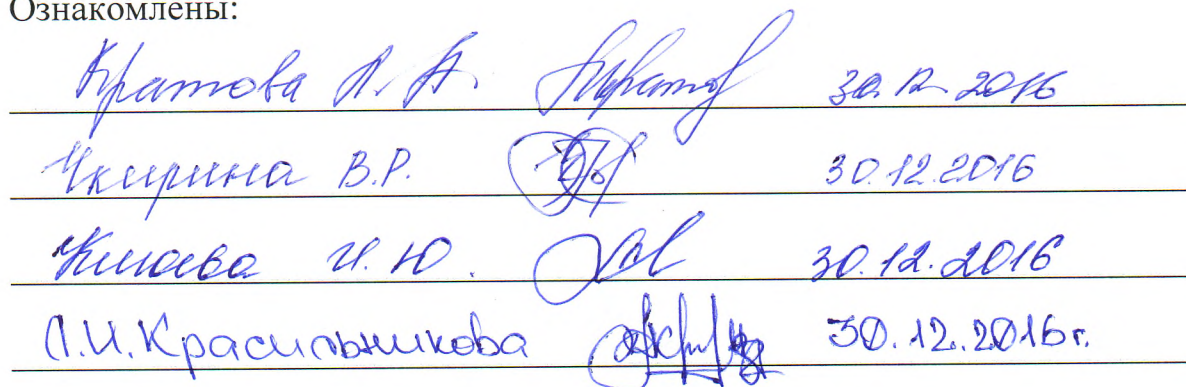 Ознакомлены:
Кратова Н. Н. 30.12.2016
Чкирина В.Р. 30.12.2016
И.Ю. 30.12.2016
Л.И. Красильникова 30.12.2016г.